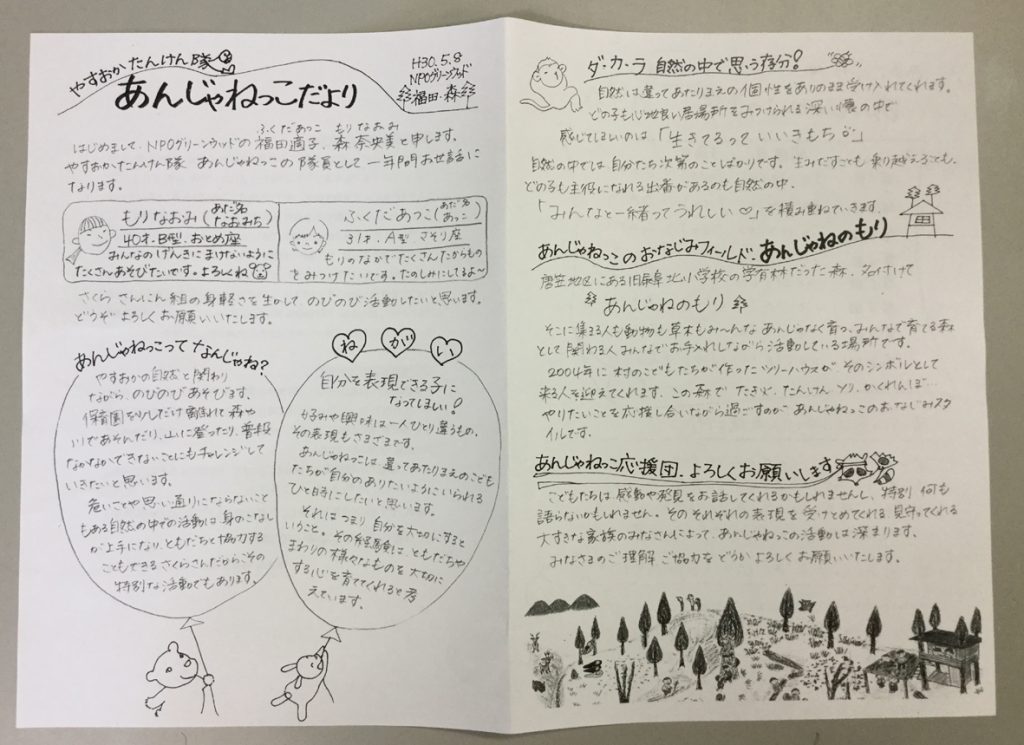 やすおかたんけん隊
あんじゃねっこだより
H30.5.8
NPOグリーンウッド
福田・森
ふくだあつこ もりなおみ
はじめまして、NPOグリーンウッドの福田適子、森奈央美と申します。
やすおかたんけん隊 あんじゃねっこの隊員として一年間お世話に
なります。
もりなおみ(あだ名 なおみち)
40才・B型・おとめ座
みんなのげんきにまけないように
たくさんあそびたいです。よろしくね
ふくだあつこ(あだ名 あっこ)
31才・A型 さそり座
もりのなかでたくさんたからもの
をみつけたいです。たのしみにしてるよ〜
さくら さんにん組の身軽さを生かして のびのび活動したいと思います。
どうぞ よろしくお願いいたします。
あんじゃねっこって なんじゃね?
やすおかの自然と関わり
ながら、のびのびあそびます。
保育園を少しだけ離れて 森や
川であそんだり、山に登ったり、普段
なかなかできないことにもチャレンジして
いきたいと思います。
危いことや思い通りにならないこと
もある自然の中での活動は、身のこなし
が上手になり、ともだちと協力する
こともできる さくらさんだからこその
特別な活動でもあります。
ねがい
自分を表現できる子に
なってほしい!
好みや興味は一人ひとり違うもの、
その表現もさまざまです。
あんじゃねっこは、違ってあたりまえのこども
たちが自分のありたいようにいられる
ひと時にしたいと思います。
それはつまり 自分を大切にすると
いうこと。その経験は、ともだちや
まわりの様々なものを 大切に
する心を育ててくれると考
えています。
ダ・カ・ラ 自然の中で思う存分!
自然は違ってあたりまえの個性をありのまま受け入れてくれます。
どの子も心地良い居場所をみつけられる深い懐の中で
感じてほしいのは「生きてるって いいきもち」
自然の中では自分たち次第のことばかりです。生みだすことも 乗り越えることも。
どの子も主役になれる出番があるのも自然の中、
「みんなと一緒ってうれしい♡」を積み重ねていきます。
あんじゃねっこのおなじみフィールド・あんじゃねのもり
唐笠地区にある旧泰阜北小学校の学有林だった森、名付けて
あんじゃねのもり
そこに集まる人も動物も草木もみ〜んな あんじゃなく育つ、みんなで育てる森
として関わる人みんなでお手入れしながら活動している場所です。
2004年に 村のこどもたちが作ったツリーハウスが そのシンボルとして
来る人を迎えてくれます。この森で たき火、たんけん、ソリ、かくれんぼ…
やりたいことを応援し合いながら過ごすのが あんじゃねっこのおなじみスタ
イルです。
あんじゃねっこ応援団、よろしくお願いします
こどもたちは 感動や発見をお話してくれるかもしれませんし、特別 何も
語らないかもしれません。そのそれぞれの表現を受けとめてくれる、見守ってくれる
大すきな家族のみなさんによって、あんじゃねっこの活動は深まります。
みなさまのご理解 ご協力を どうか よろしく お願いいたします。